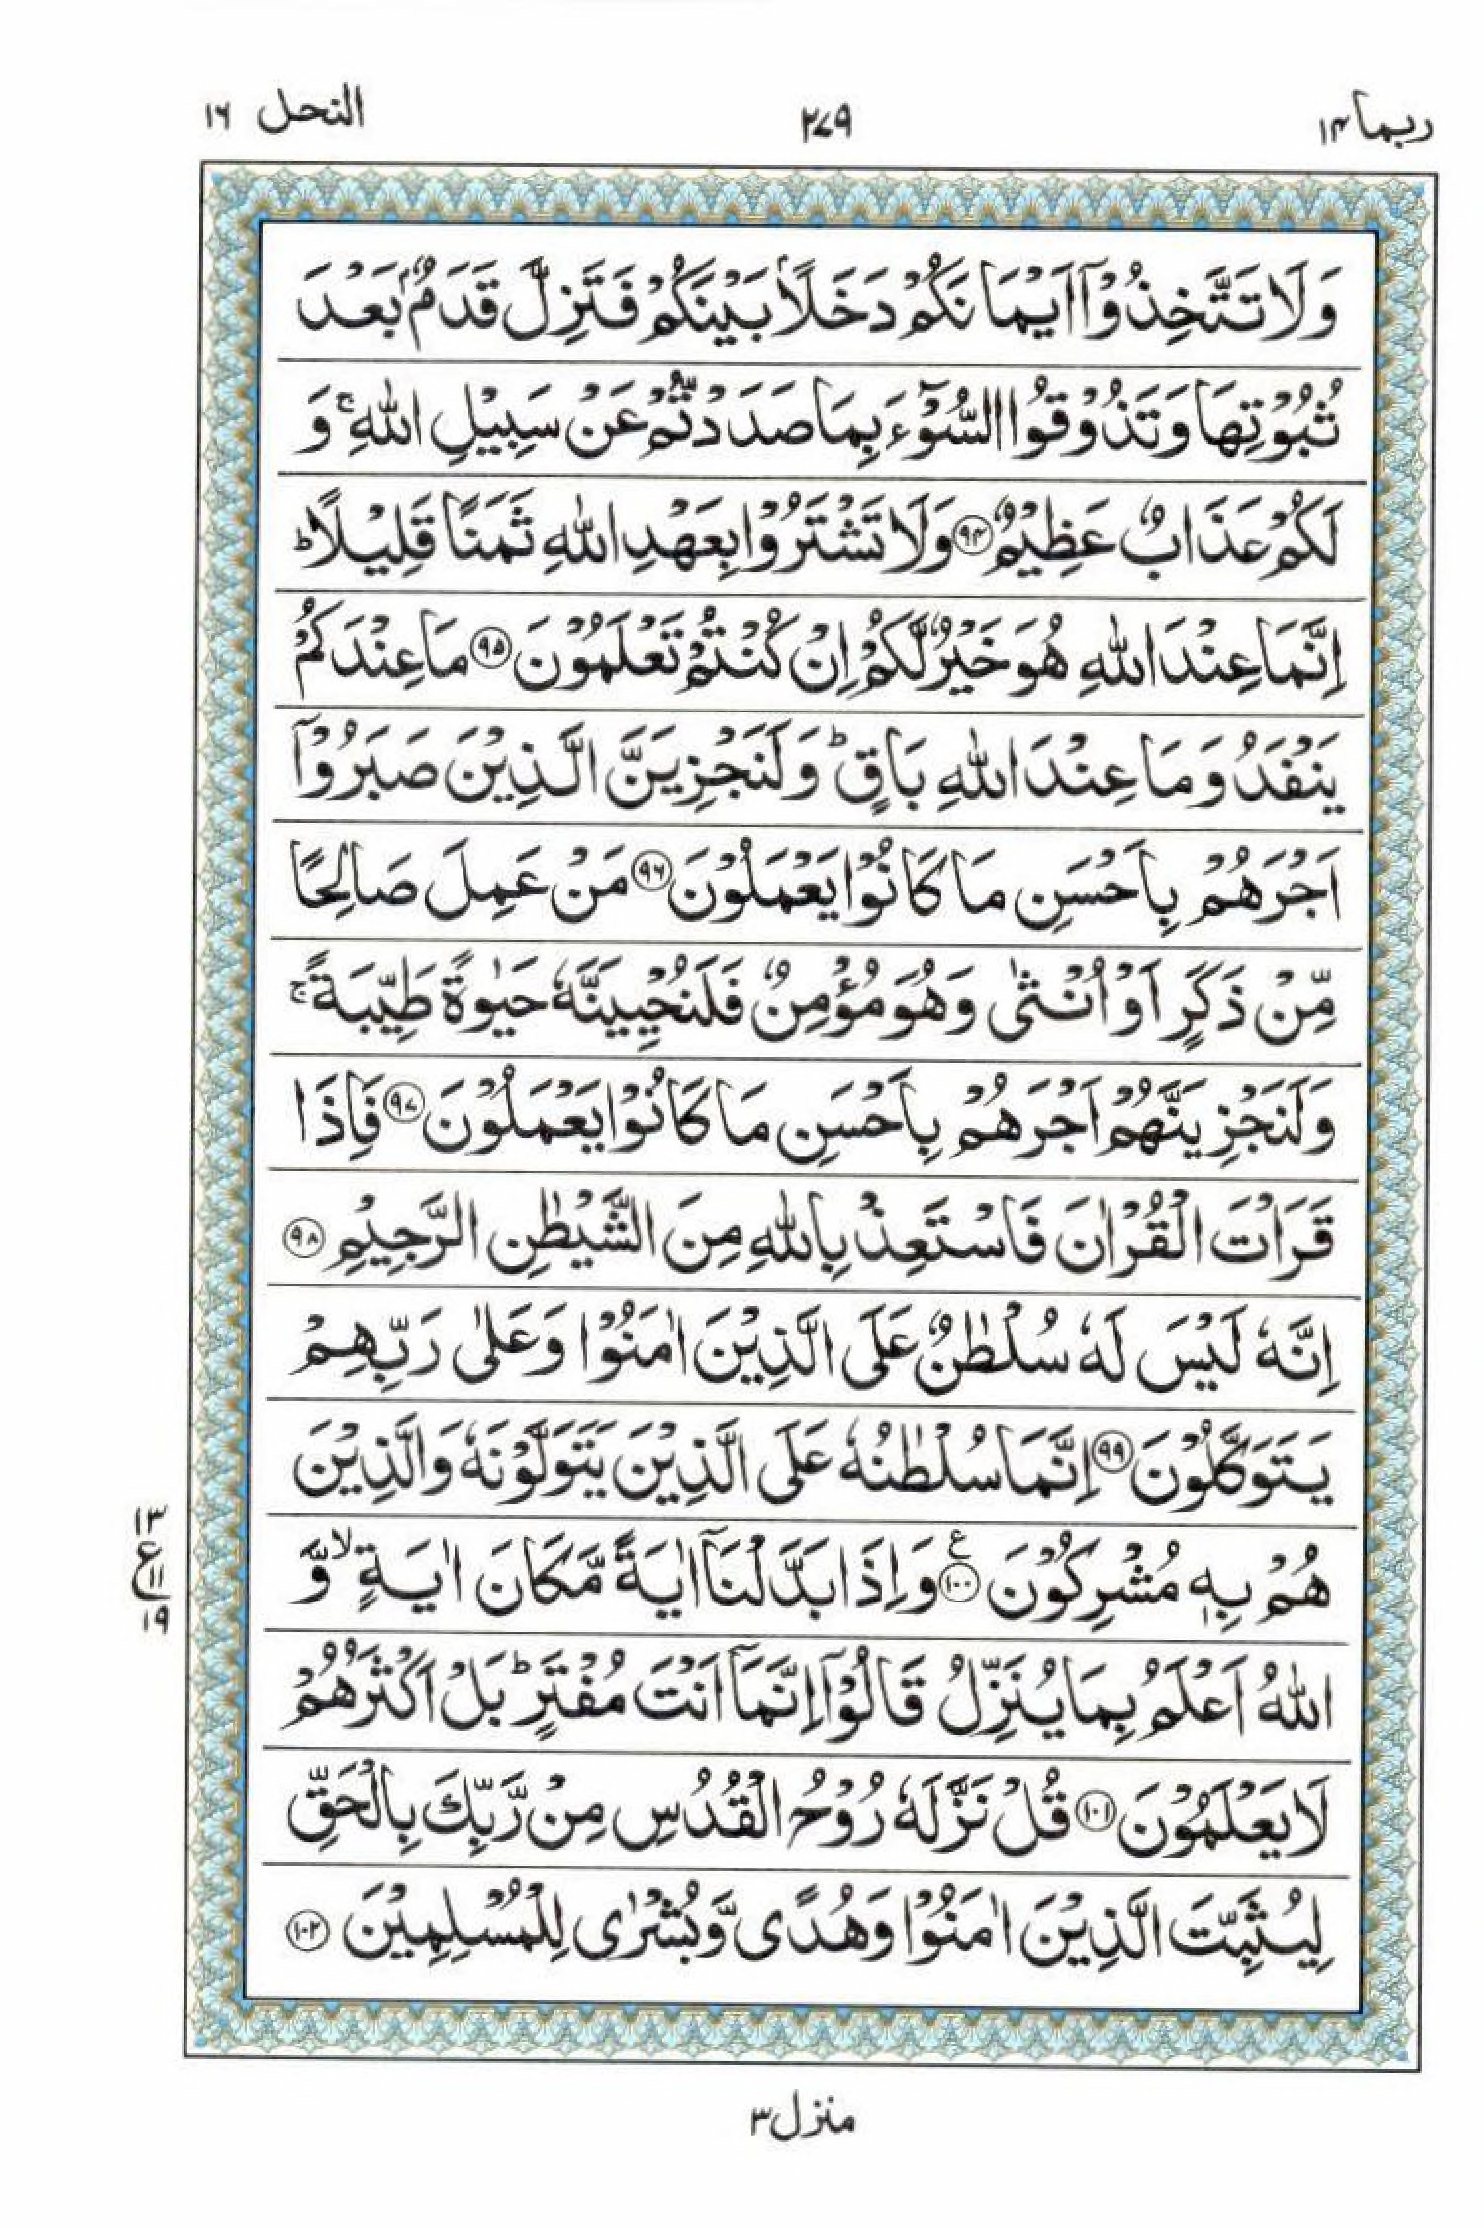 ربما ١٤
٢٧٩
النحل ١٦
وَلَا تَتَّخِذُوْۤا اَيْمَانَكُمْ دَخَلًۢا بَيْنَكُمْ فَتَزِلَّ قَدَمٌۢ بَعْدَ
ثُبُوْتِهَا وَتَذُوْقُوا السُّوْٓءَ بِمَا صَدَدْتُّمْ عَنْ سَبِيْلِ اللّٰهِ ۚ وَ
لَكُمْ عَذَابٌ عَظِيْمٌ ﴿۹۴﴾ وَلَا تَشْتَرُوْا بِعَهْدِ اللّٰهِ ثَمَنًا قَلِيْلًا ؕ
اِنَّمَا عِنْدَ اللّٰهِ هُوَ خَيْرٌ لَّكُمْ اِنْ كُنْتُمْ تَعْلَمُوْنَ ﴿۹۵﴾ مَا عِنْدَكُمْ
يَنْفَدُ وَمَا عِنْدَ اللّٰهِ بَاقٍ ؕ وَلَنَجْزِيَنَّ الَّذِيْنَ صَبَرُوْۤا
اَجْرَهُمْ بِاَحْسَنِ مَا كَانُوْا يَعْمَلُوْنَ ﴿۹۶﴾ مَنْ عَمِلَ صَالِحًا
مِّنْ ذَكَرٍ اَوْ اُنْثٰى وَهُوَ مُؤْمِنٌ فَلَنُحْيِيَنَّهٗ حَيٰوةً طَيِّبَةً ۚ
وَلَنَجْزِيَنَّهُمْ اَجْرَهُمْ بِاَحْسَنِ مَا كَانُوْا يَعْمَلُوْنَ ﴿۹۷﴾ فَاِذَا
قَرَاْتَ الْقُرْاٰنَ فَاسْتَعِذْ بِاللّٰهِ مِنَ الشَّيْطٰنِ الرَّجِيْمِ ﴿۹۸﴾
اِنَّهٗ لَيْسَ لَهٗ سُلْطٰنٌ عَلَى الَّذِيْنَ اٰمَنُوْا وَعَلٰى رَبِّهِمْ
يَتَوَكَّلُوْنَ ﴿۹۹﴾ اِنَّمَا سُلْطٰنُهٗ عَلَى الَّذِيْنَ يَتَوَلَّوْنَهٗ وَالَّذِيْنَ
هُمْ بِهٖ مُشْرِكُوْنَ ﴿۱۰۰﴾ ع وَاِذَا بَدَّلْنَاۤ اٰيَةً مَّكَانَ اٰيَةٍ ۙ وَّ
اللّٰهُ اَعْلَمُ بِمَا يُنَزِّلُ قَالُوْۤا اِنَّمَاۤ اَنْتَ مُفْتَرٍ ؕ بَلْ اَكْثَرُهُمْ
لَا يَعْلَمُوْنَ ﴿۱۰۱﴾ قُلْ نَزَّلَهٗ رُوْحُ الْقُدُسِ مِنْ رَّبِّكَ بِالْحَقِّ
لِيُثَبِّتَ الَّذِيْنَ اٰمَنُوْا وَهُدًى وَّبُشْرٰى لِلْمُسْلِمِيْنَ ﴿۱۰۲﴾
١٣
ع
١١
١٩
منزل ٣